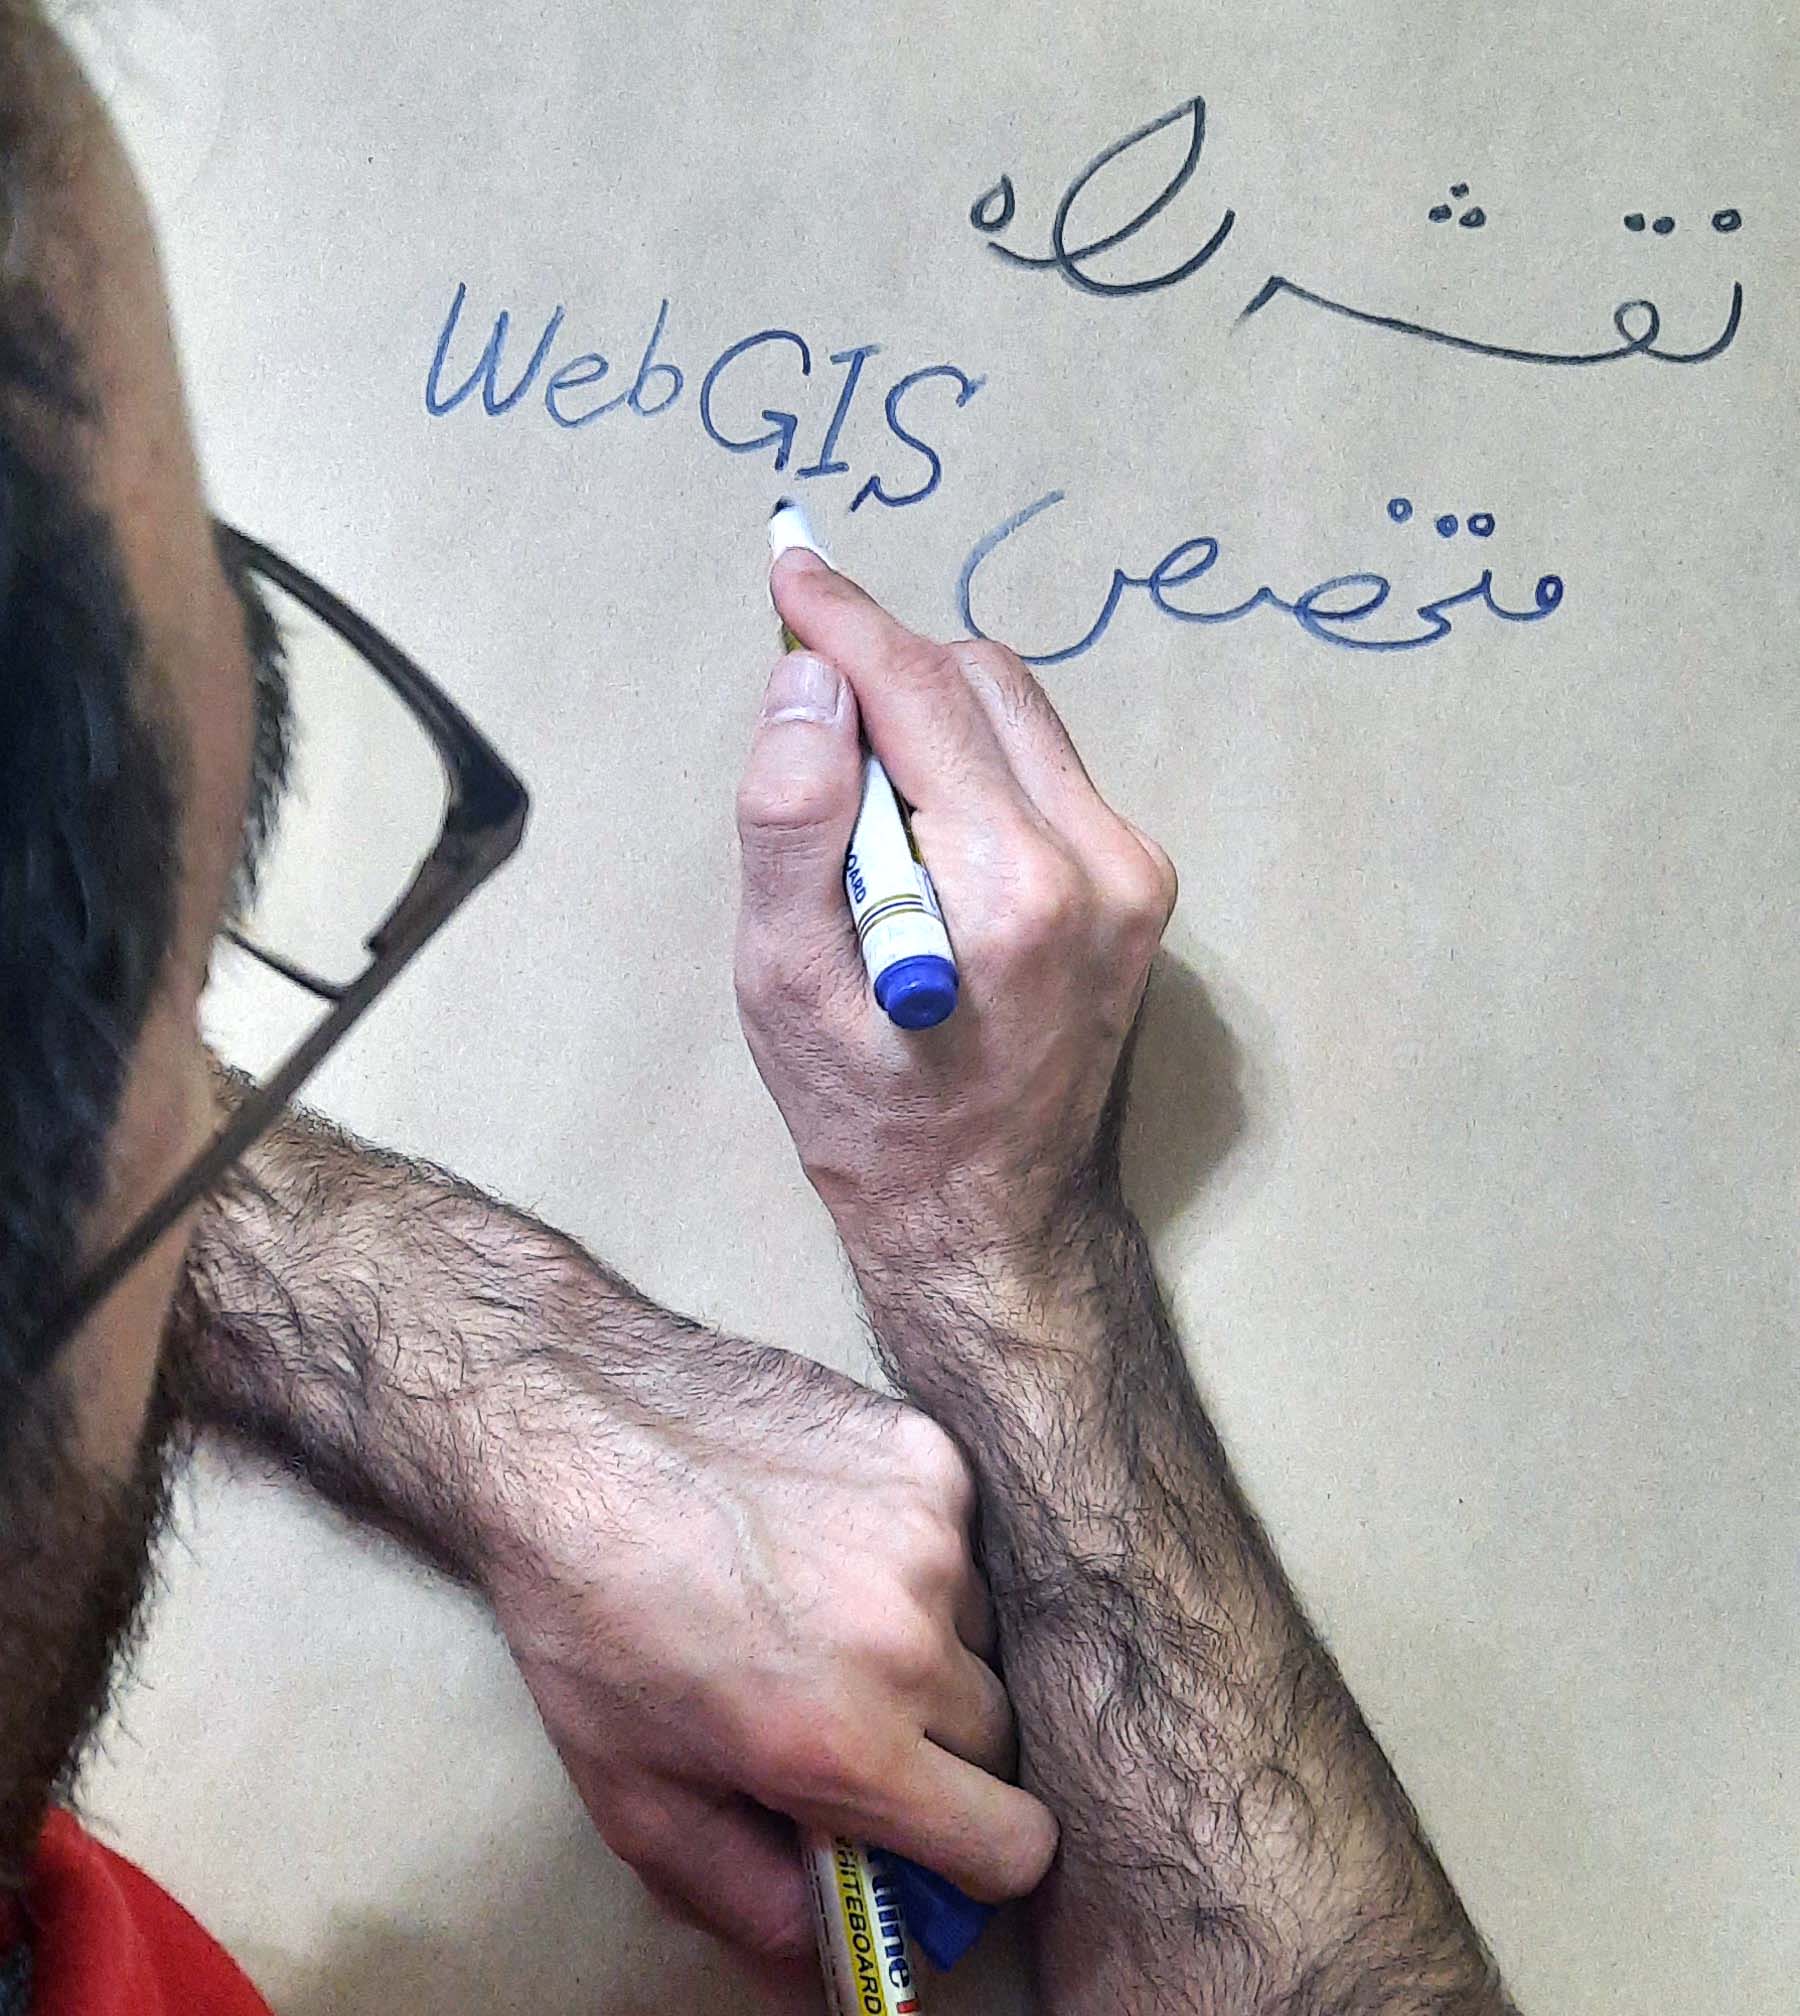 نقشه راه
متخصص WebGIS
BOARD
WHITEBOARD